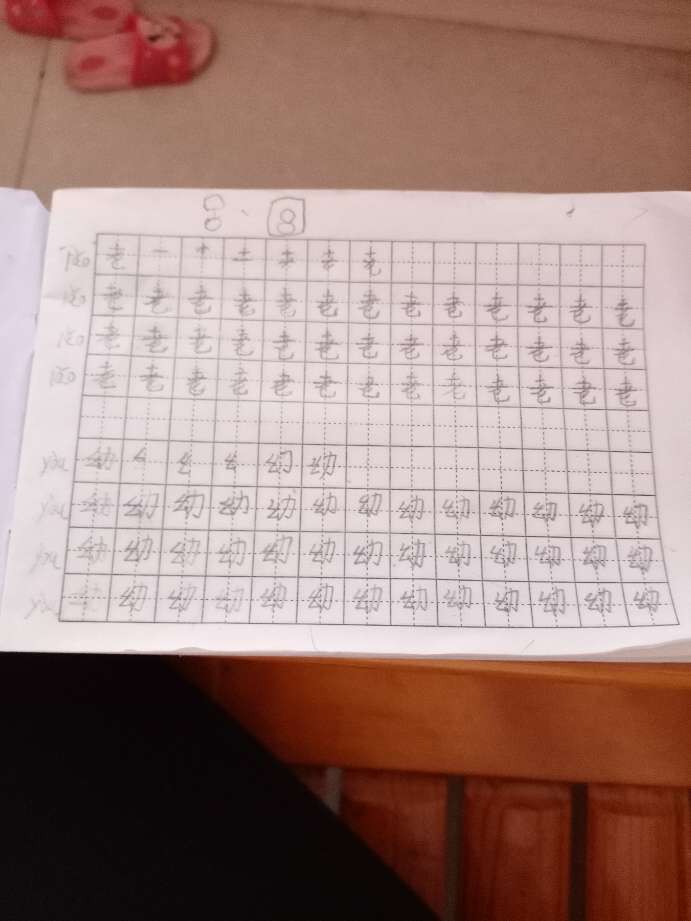 8 8
lǎo 老 一 十 土 耂 耂 老
lǎo 老 老 老 老 老 老 老 老 老 老 老 老 老
lǎo 老 老 老 老 老 老 老 老 老 老 老 老 老
lǎo 老 老 老 老 老 老 老 老 老 老 老 老 老
yòu 幼 幺 幻 幼
yòu 幼 幼 幼 幼 幼 幼 幼 幼 幼 幼 幼 幼 幼
yòu 幼 幼 幼 幼 幼 幼 幼 幼 幼 幼 幼 幼 幼
yòu 幼 幼 幼 幼 幼 幼 幼 幼 幼 幼 幼 幼 幼